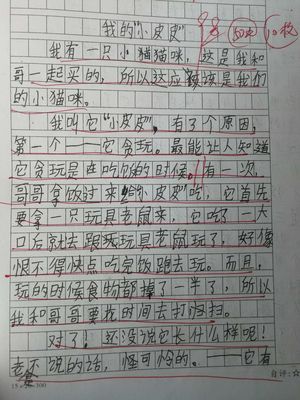 我的“小皮皮”
50 10枚
我有一只小猫猫咪，这是我和
哥一起买的，所以这应该是我们
的小猫咪。
我叫它“小皮皮”，有了个原因，
第一个——它贪玩。最能让人知道
它贪玩是在吃饭的时候。有一次，
哥哥拿饭过来给“小皮皮”吃，它首先
要拿一只玩具老鼠来，它吃了一大
口后就去跟玩具老鼠玩了，好像
恨不得快点吃完饭跑去玩。而且，
玩的时候食物都掉了一半了，所以
我和哥哥要找时间去打归扫。
对了！还没说它长什么样呢！
老不说的话，怪可怜的。——它有
自评：☆
15×20=300